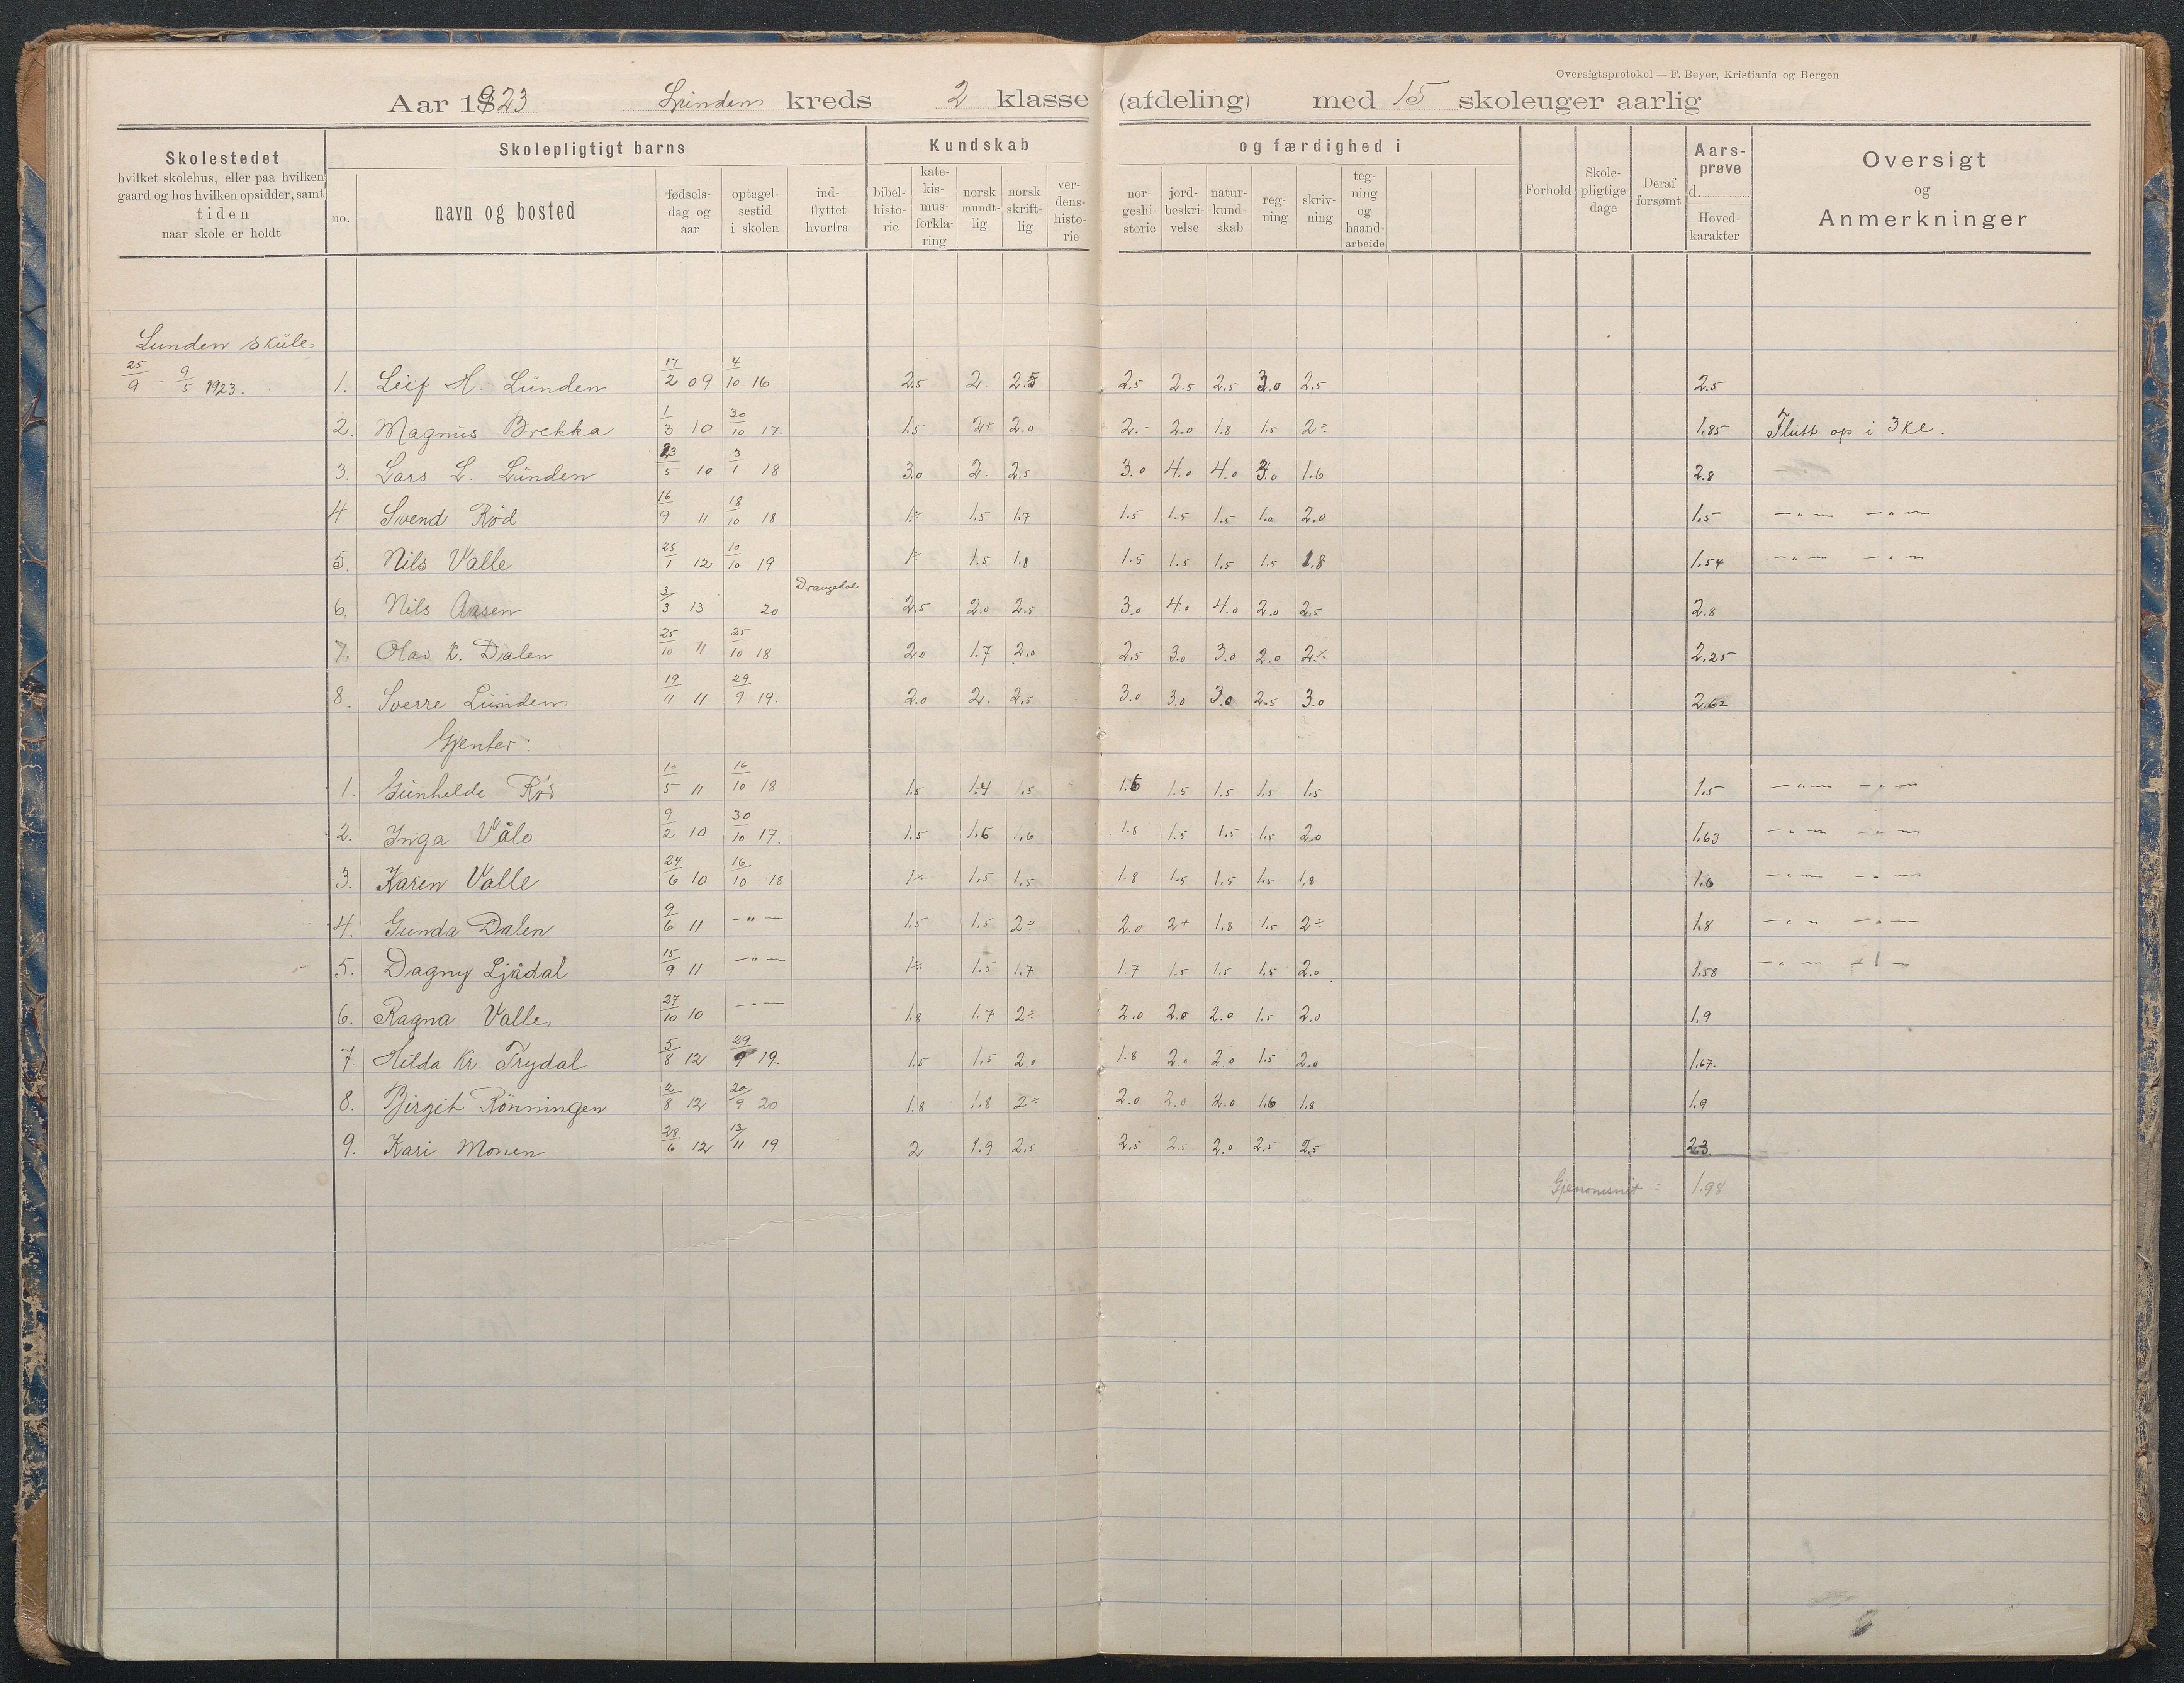 Oversigtsprotokol — F. Beyer, Kristiania og Bergen
Aar 1923 Lunden kreds 2 klasse (afdeling) med 15 skoleuger aarlig
Skolestedet
hvilket skolehus, eller paa hvilken
gaard og hos hvilken opsidder, samt
tiden
naar skole er holdt
Skolepligtigt barns
no.
navn og bosted
fødsels-
dag og
aar
optagel-
sestid
i skolen
ind-
flyttet
hvorfra
Kundskab
bibel-
histo-
rie
kate-
kis-
mus-
forkla-
ring
norsk
mundt-
lig
norsk
skrift-
lig
ver-
dens-
histo-
rie
og færdighed i
nor-
geshi-
storie
jord-
beskri-
velse
natur-
kund-
skab
reg-
ning
skriv-
ning
teg-
ning
og
haand-
arbeide
Forhold
Skole-
pligtige
dage
Deraf
forsømt
Aars-
prøve
d.
Hoved-
karakter
Oversigt
og
Anmerkninger
Lunden skule
25/9 – 9/5 1923.
1. Leif H. Lunden 17/2 09 4/10 16 2.5 2. 2.5 2.5 2.5 2.5 3.0 2.5 2.5
2. Magnus Brekka 1/3 10 30/10 17. 1.5 2+ 2.0 2.- 2.0 1.8 1.5 2÷ 1.85 Flutt op i 3 kl.
3. Lars L. Lunden 23/5 10 3/1 18 3.0 2. 2.5 3.0 4.0 4.0 3.0 1.6 2.8
4. Svend Rød 16/9 11 18/10 18 1÷ 1.5 1.7 1.5 1.5 1.5 1.0 2.0 1.5 — " — — " —
5. Nils Valle 25/1 12 10/10 19 1÷ 1.5 1.8 1.5 1.5 1.5 1.5 1.8 1.54 — " — — " —
6. Nils Aasen 3/3 13 20 Drangedal 2.5 2.0 2.5 3.0 4.0 4.0 2.0 2.5 2.8
7. Olav K. Dalen 25/10 11 25/10 18 2.0 1.7 2.0 2.5 3.0 3.0 2.0 2÷ 2.25
8. Sverre Lunden 19/11 11 29/9 19. 2.0 2. 2.5 3.0 3.0 3.0 2.5 3.0 2.62
Gjenter:
1. Gunhilde Rød 10/5 11 16/10 18 1.5 1.4 1.5 1.6 1.5 1.5 1.5 1.5 1.5 — " — — " —
2. Inga Vålo 9/2 10 30/10 17. 1.5 1.6 1.6 1.8 1.5 1.5 1.5 2.0 1.63 — " — — " —
3. Karen Valle 24/6 10 16/10 18 1÷ 1.5 1.5 1.8 1.5 1.5 1.5 1.8 1.6 — " — — " —
4. Gunda Dalen 9/6 11 — " — 1.5 1.5 2÷ 2.0 2+ 1.8 1.5 2÷ 1.8 — " — — " —
5. Dagny Ljådal 15/9 11 — " — 1÷ 1.5 1.7 1.7 1.5 1.5 1.5 2.0 1.58 — " — — " —
6. Ragna Valle 27/10 10 — " — 1.8 1.7 2÷ 2.0 2.0 2.0 1.5 2.0 1.9
7. Hilda Kr. Trydal 5/8 12 29/9 19. 1.5 1.5 2.0 1.8 2.0 2.0 1.5 2.0 1.67.
8. Birgit Rönningen 2/8 12 20/9 20 1.8 1.8 2÷ 2.0 2.0 2.0 1.6 1.8 1.9
9. Kari Monen 28/6 12 13/11 19 2 1.9 2.5 2.5 2.5 2.0 2.5 2.5 2.3
Gjenomsnit : 1.98